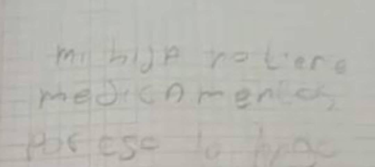 mi hija no tiene
medicamentos,
por eso lo hace